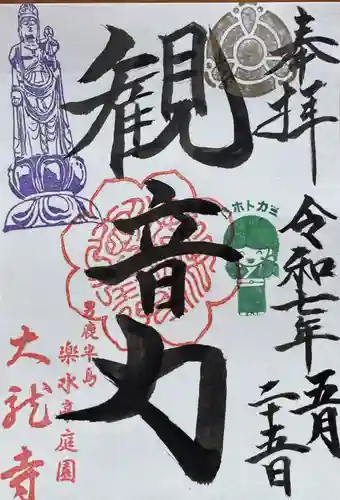 奉拝
令和七年
五月
二十五日
観音力
ホトカミ
男鹿半島
楽水亭庭園
大龍寺